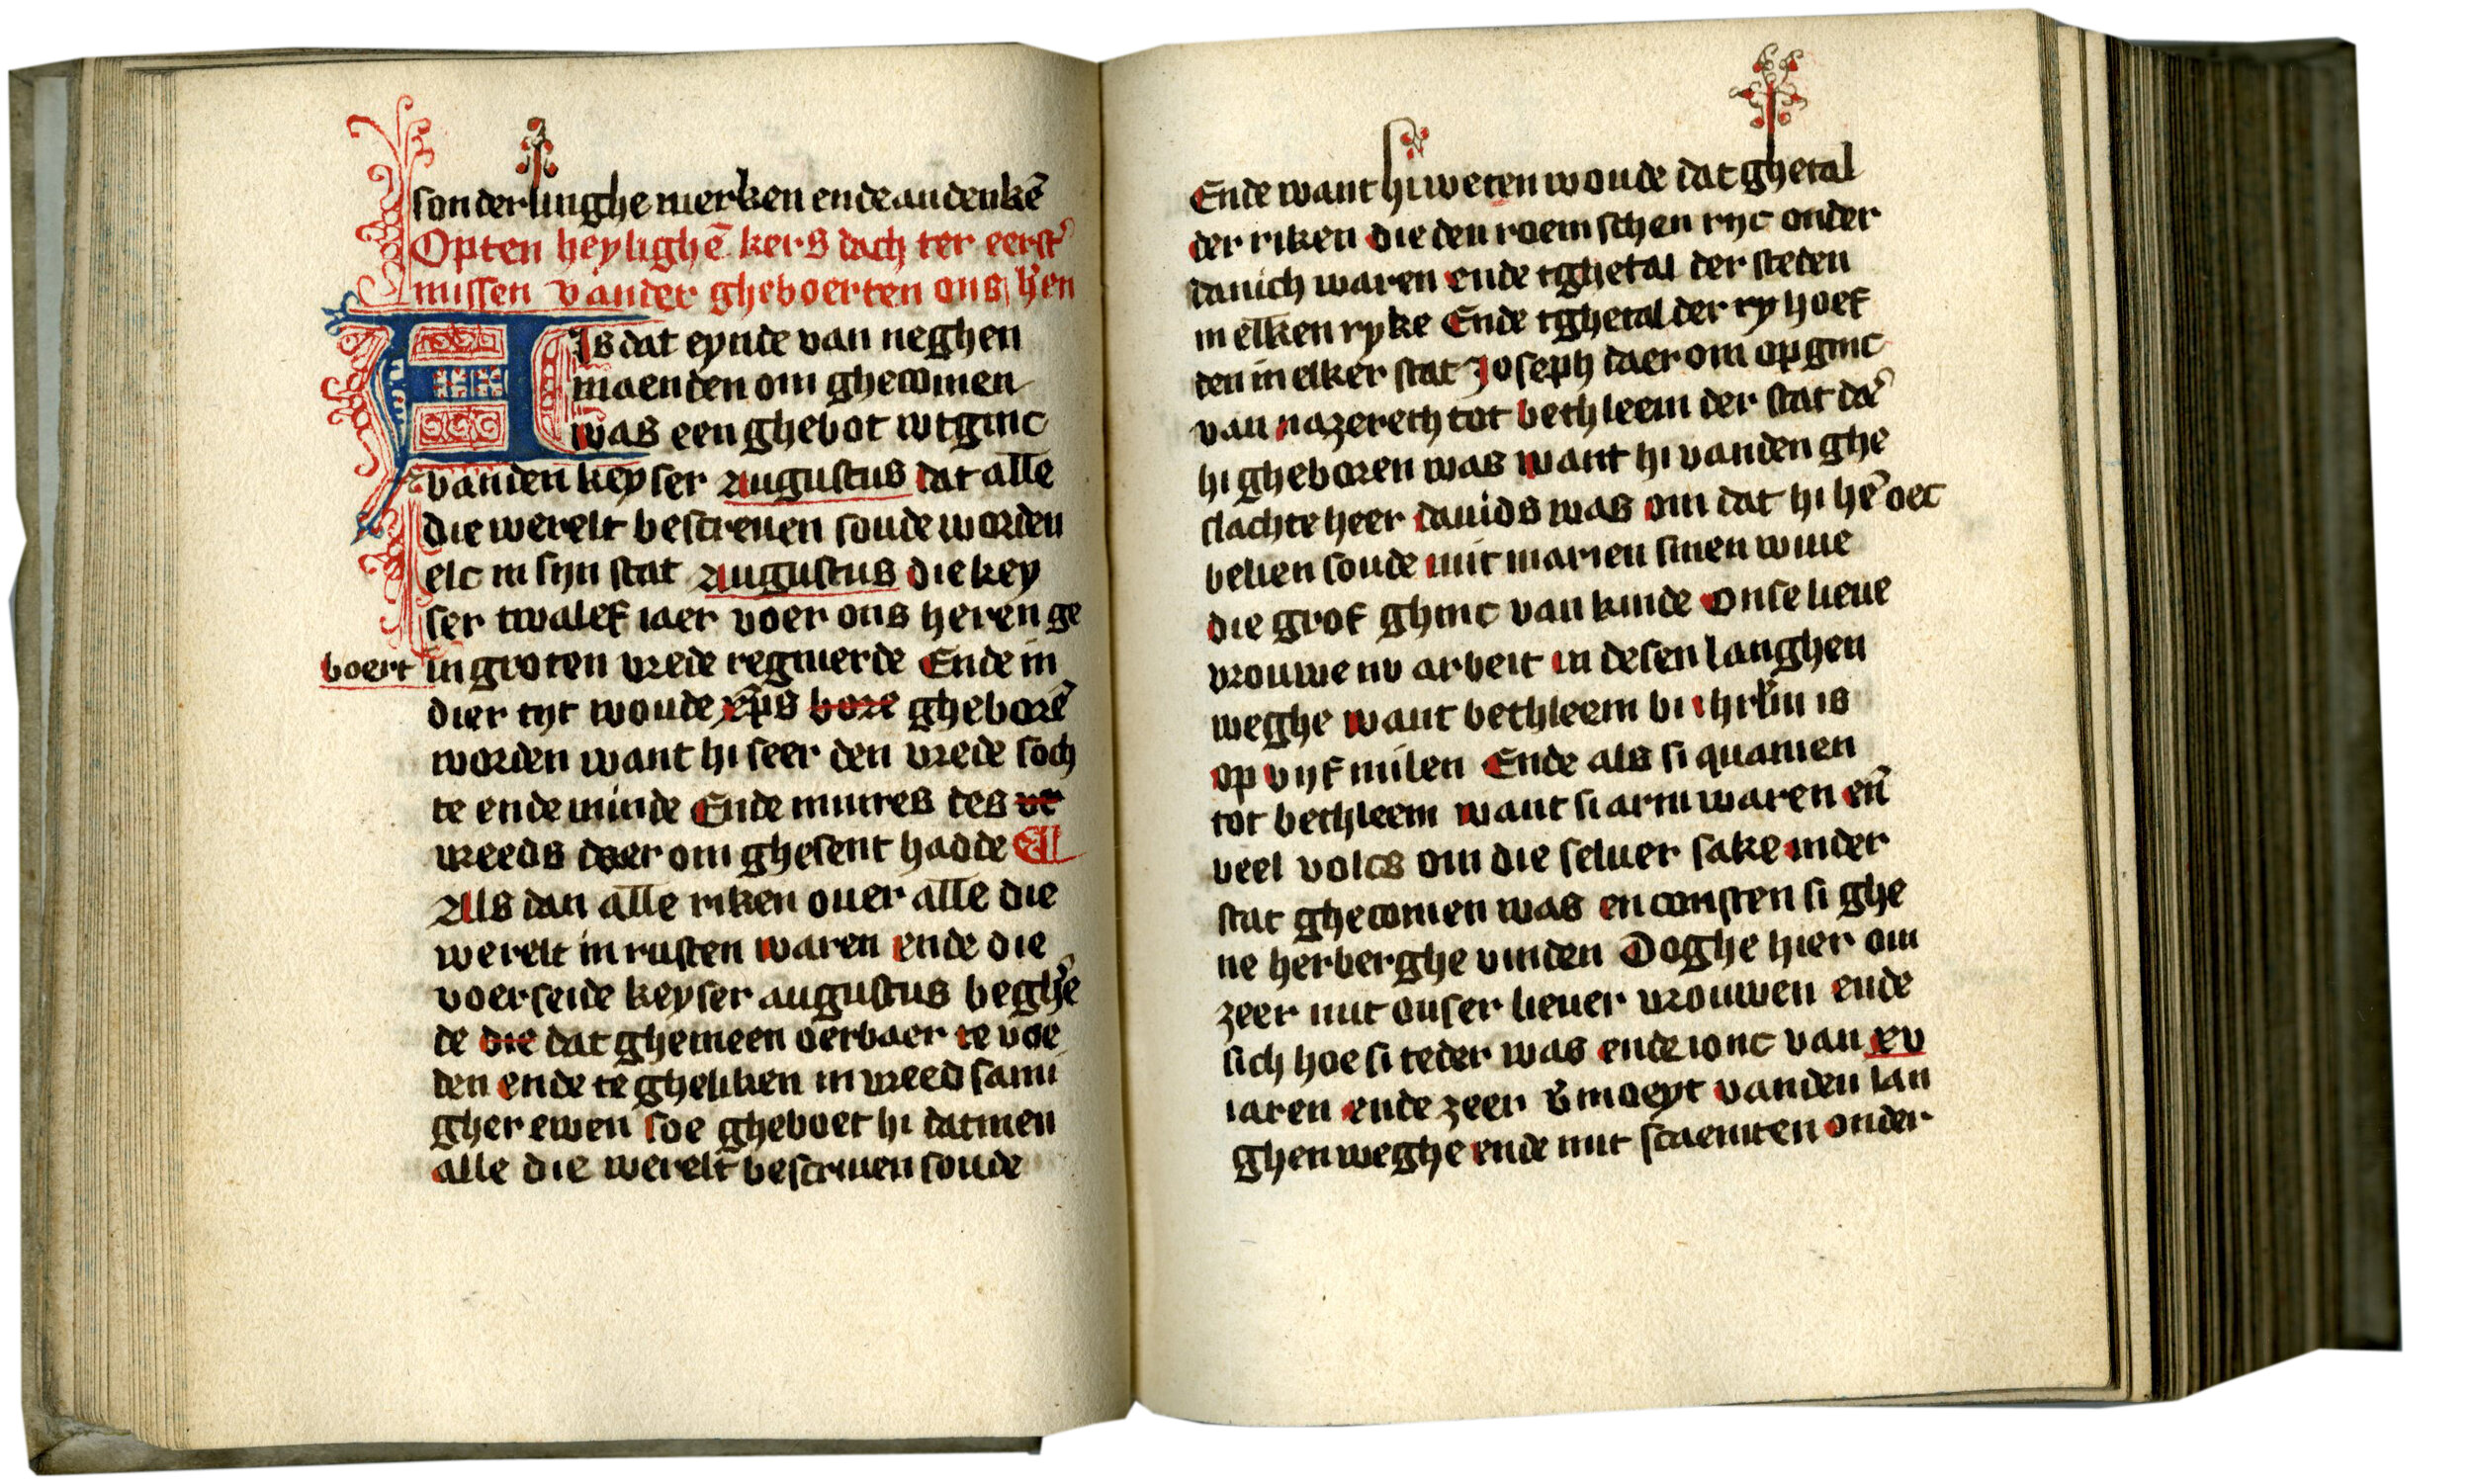 sonderlinghe merken ende andenkē
Opten heylighē kers dach ter eerst̛
missen vander gheboerten ons h̛en
Als dat eynde van neghen
maenden om ghecomen
was een ghebot wtginc
vanden keyser augustus dat alle
die werelt bescreuen soude worden
elc in sijn stat augustus die key
ser twalef iaer voer ons heren ge
boert in groten vrede regnierde Ende in
dier tijt woude xp̄s bore gheborē
worden want hi seer den vrede soch
te ende minde Ende mittes des vr
vreeds daer om ghesent hadde
Als dan alle riken ouer alle die
werelt in rusten waren ende die
voerseide keyser augustus beghē
de die dat ghemeen oerbaer te voe
den ende te gheliken in vreed sami
gher ewen soe gheboet hi datmen
alle die werelt bescriuen soude
Ende want hi weten woude dat ghetal
der riken die den roemschen rijc onder
danich waren ende tghetal der steden
in elken ryke Ende tghetal der ry hoef
den in elker stat Joseph daer om op ginc
van nazereth tot bethleem der stat daer̛
hi gheboren was want hi vanden ghe
slachte heer dauids was om dat hi hē oec
belien soude mit marien sinen wiue
die grof ghinc van kinde Onse lieue
vrouwe nv arbeit in desen langhen
weghe want bethleem bi ihrl̄m is
op vijf milen Ende als si quamen
tot bethleem want si arm waren eñ
veel volcs om die seluer sake inder
stat ghecomen was en consten si ghe
ne herberghe vinden Doghe hier om
zeer mit onser lieuer vrouwen ende
sich hoe si teder was ende ionc van xv
iaren ende zeer v̛moeyt vanden lan
ghen weghe ende mit scaemten onder